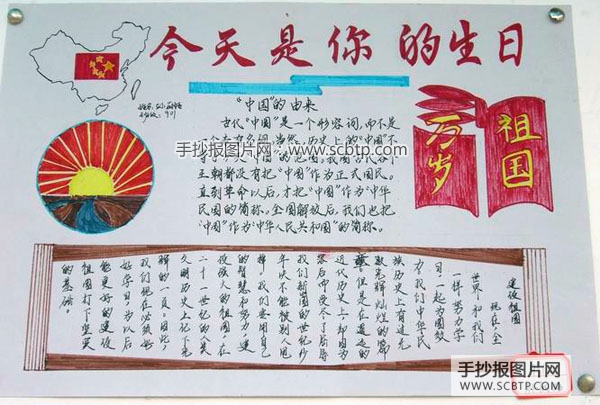 今天是你的生日
"中国"的由来
古代"中国"是一个形容词,而不是
历史上的"中国"不
"的范围.我国古代
王朝都没有把"中国"作为正式国名.
直到革命以后,才把"中国"作为"中华
民国"的简称。全国解放后,我们也把
"中国"作为"中华人民共和国"的简称。
手抄报图片网
www.scbtp.com
祖国
万岁
建设祖国
现在,全
世界和我们
一样努力学
习,一起为国效
力,我们中华民
族历史上有过无
数光辉灿烂的篇
章,但是在遥远的
近代历史上,却因为
受尽了屈辱
我们新国的世纪
年决不能被别人甩
掉,我们要用自己
的智慧和努力,建
设强大的祖国,在
二十一世纪的人类
文明历史上记下光
辉的一页。因此,
我们现在必须好
好学习,为以后
能更好的建设
祖国打下坚实
的基础。
手抄报图片网
WWW.SCBTP.COM